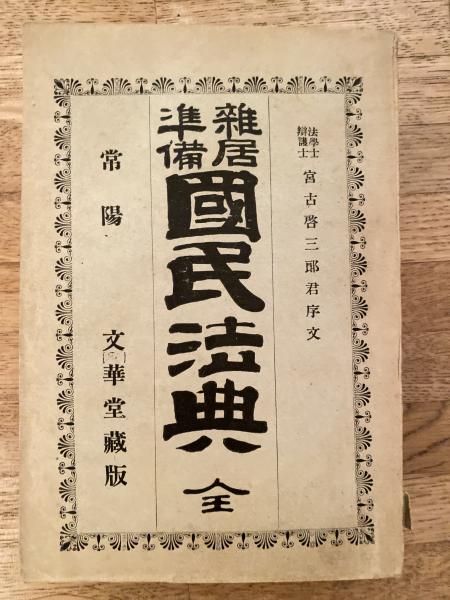 法學士
辯護士
宮古啓三郎君序文
雜居
準備
國民法典 全
常陽 文華堂藏版